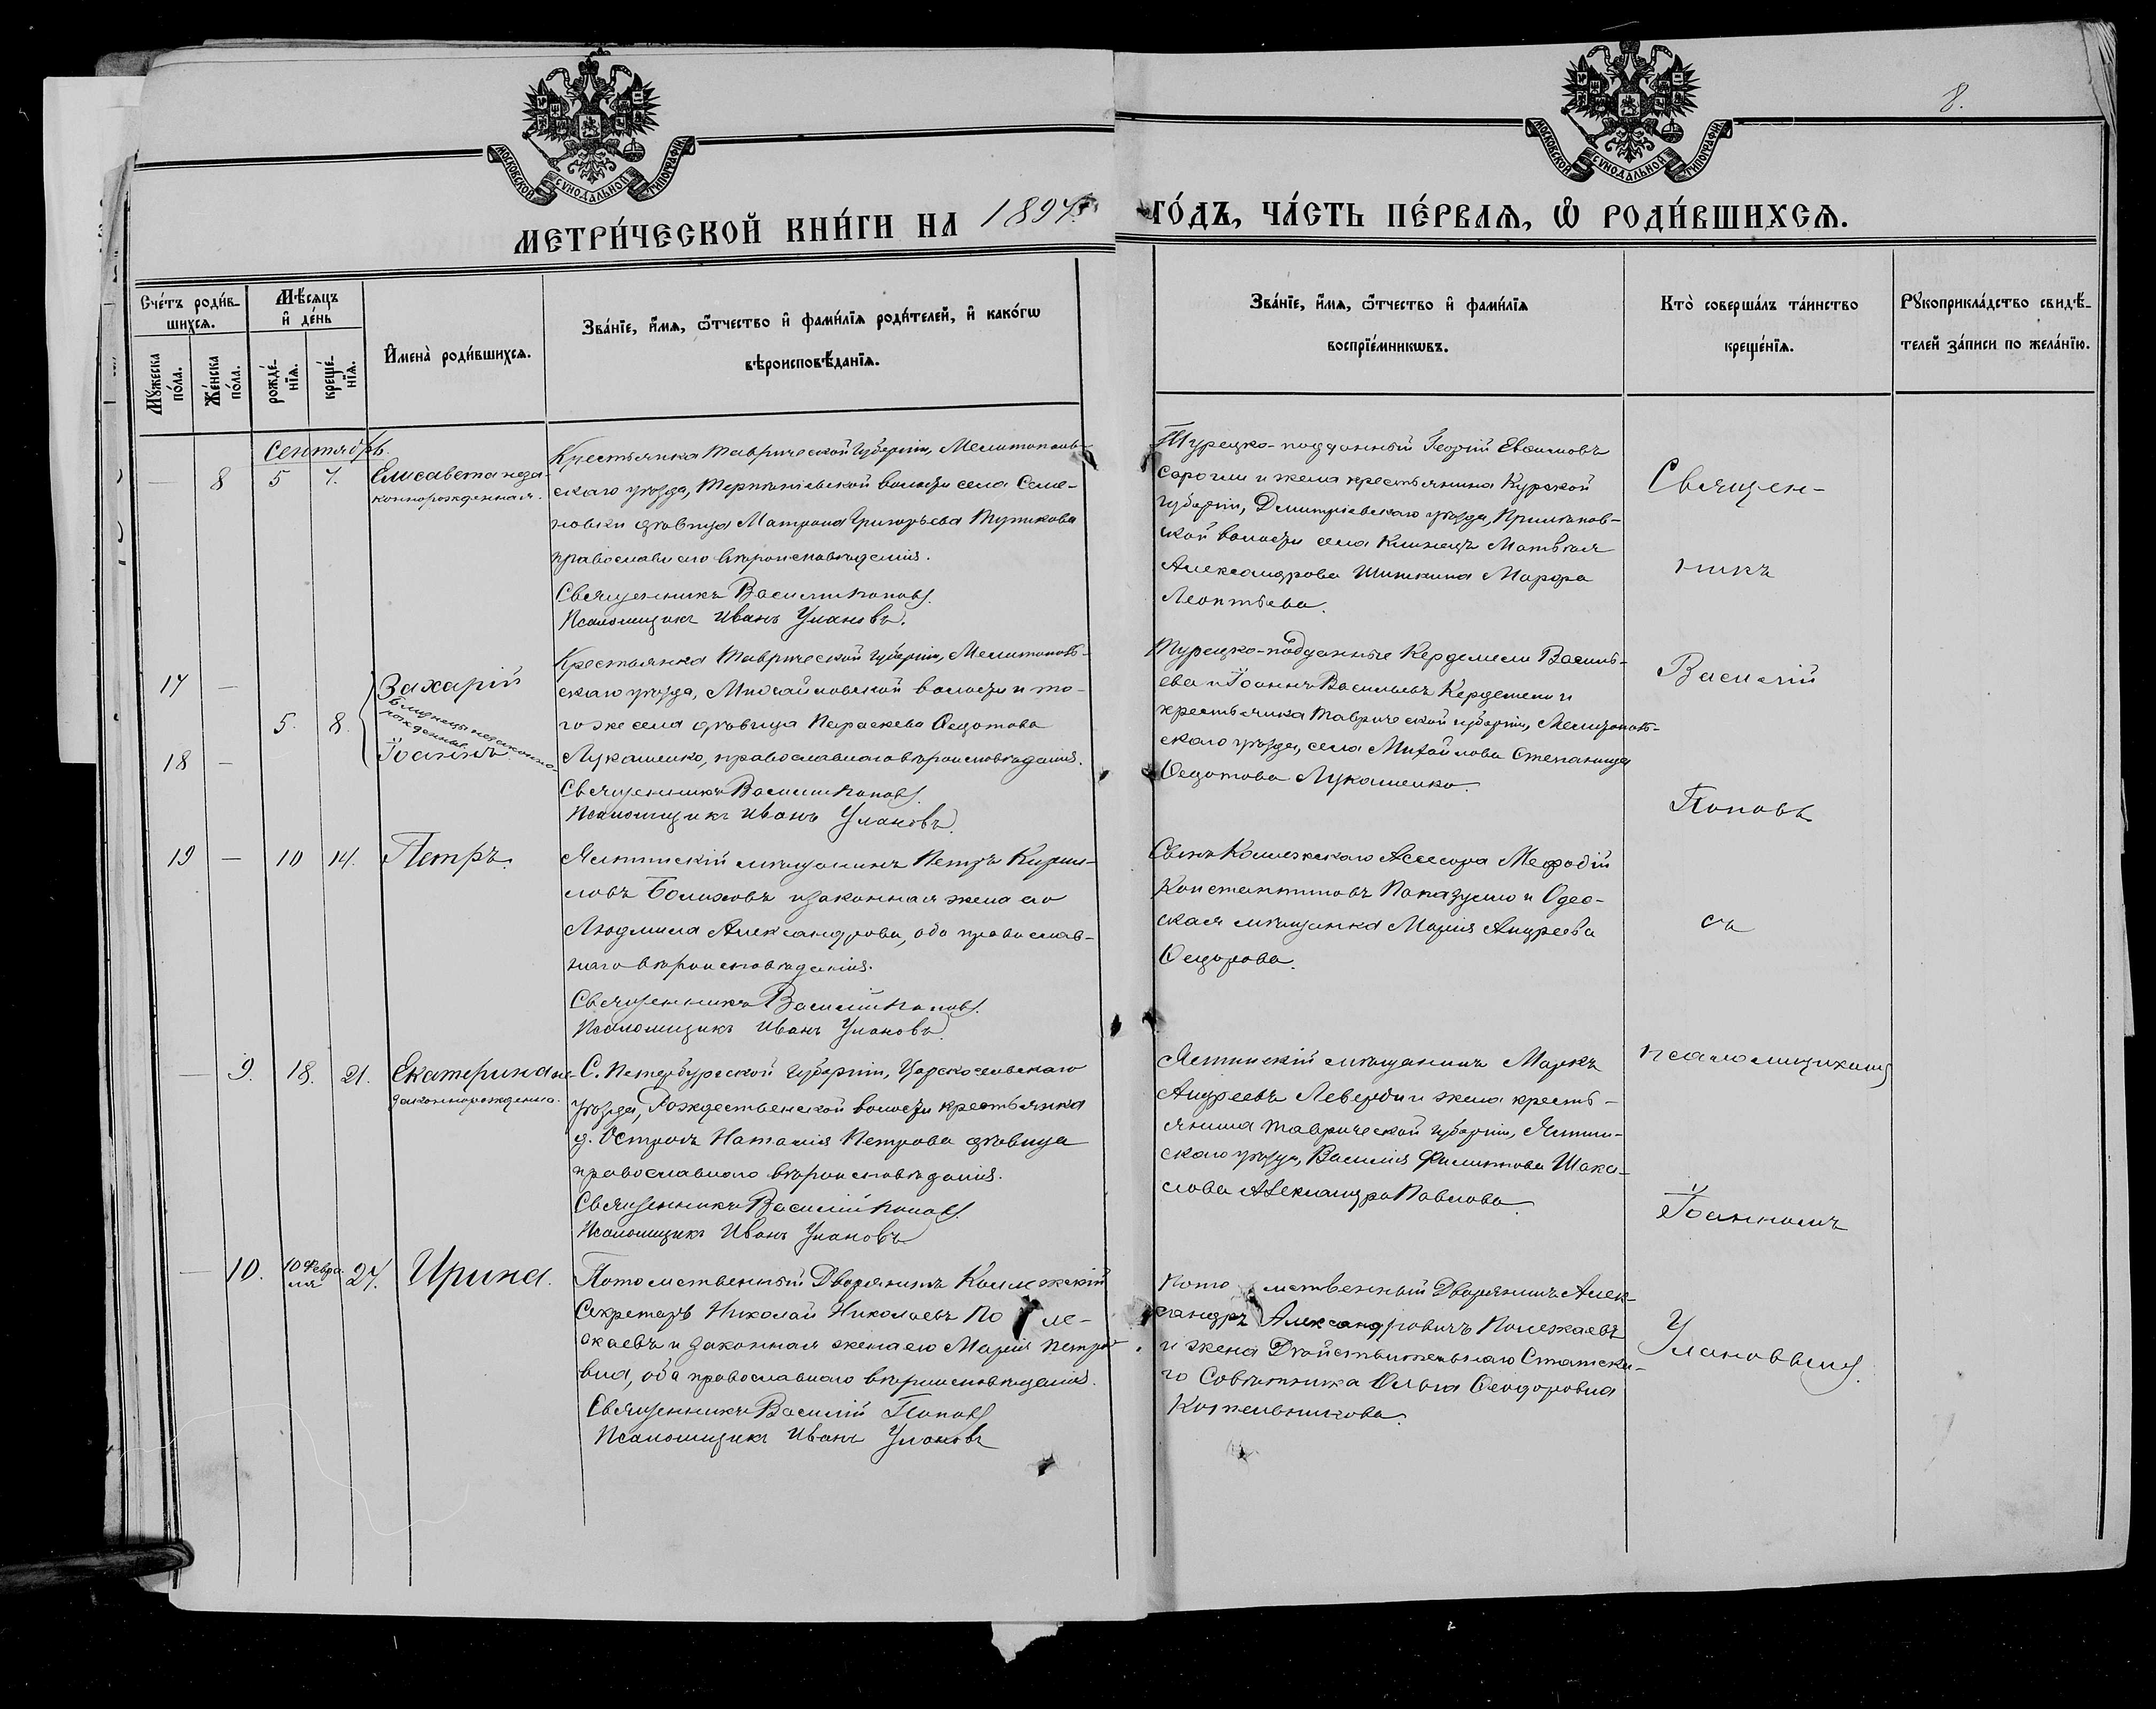 МОСКОВСКОЙ СѴНОДАЛЬНОЙ ТИПОГРАФІИ
МОСКОВСКОЙ СѴНОДАЛЬНОЙ ТИПОГРАФІИ
8.
МЕТРИ́ЧЕСКОЙ КНИ́ГИ НА 1897 ГО́ДЪ, ЧА́СТЬ ПЕ́РВАѦ, Ѡ҆ РОДИ́ВШИХСѦ.
Сче́тъ роди́в-
шихсѧ.
Мꙋ́жеска по́ла.
Же́нска по́ла.
Мѣ́сѧцъ и҆ де́нь
рожде́-нїѧ.
креще́-нїѧ.
И҆мена̀ роди́вшихсѧ.
Зва́нїе, и҆́мѧ, ѻ҆́тчество и҆ фами́лїѧ роди́телей, и҆ како́гѡ
вѣроисповѣ́данїѧ.
Зва́нїе, и҆́мѧ, ѻ҆́тчество и҆ фами́лїѧ
воспрїе́мникѡвъ.
Кто̀ соверша́лъ та́инство
креще́нїѧ.
Рꙋкоприкла́дство свидѣ́-
телей за́писи по жела́нїю.
Сентябрь.
— 8 5 7. Елисавета неза
коннорожденная.
Крестьянка Таврической губерніи, Мелитополь-
скаго уѣзда, волости села Семе-
новки дѣвица Матрона Григорьева
православнаго вѣроисповѣданія.
Священникъ Василій Поповъ.
Псаломщикъ Иванъ Улановъ.
Турецко-подданный Георгій Евѳимовъ
и жена крестьянина Курской
губерніи, Дмитріевскаго уѣзда,
ской волости села Клинецъ Матвѣя
Александрова Шишкина Марѳа
Леонтьева.
17 —
18 —
5. 8.
Захарій
близнецы незаконно-
рожденные
Іоаннъ
Крестьянка Таврической губерніи, Мелитополь-
скаго уѣзда, Михайловской волости и то-
гоже села дѣвица Параскева Ѳедотова
Лукашенко, православнаго вѣроисповѣданія.
Священникъ Василій Поповъ.
Псаломщикъ Иванъ Улановъ.
Турецко-подданные Василь-
ева и Іоаннъ Васильевъ и
крестьянка Таврической губерніи, Мелитополь-
скаго уѣзда, села Михайлова Степанида
Ѳедотова Лукашенко.
19 — 10 14. Петръ.
Ялтинскій мѣщанинъ Петръ Кирил-
ловъ и законная жена его
Людмила Александрова, оба православ-
наго вѣроисповѣданія.
Священникъ Василій Поповъ.
Псаломщикъ Иванъ Улановъ.
Сынъ Коллежскаго Асессора Меѳодій
Константиновъ и Одес-
ская мѣщанка Марія Андреева
Ѳедорова.
— 9. 18. 21. Екатерина не-
законнорожденна.
С. Петербургской губерніи, Царскосельскаго
уѣзда, Рождественской волости крестьянка
д. Островъ Наталія Петрова дѣвица
православнаго вѣроисповѣданія.
Священникъ Василій Поповъ.
Псаломщикъ Иванъ Улановъ
Ялтинскій мѣщанинъ Маркъ
Андреевъ и жена кресть-
янина Таврической губерніи, Ялтин-
скаго уѣзда, Василія Филиппова Шака-
лова Александра Павлова.
— 10. 10 Февра-
ля 27. Ирина.
Потомственный Дворянинъ Коллежскій
Секретарь Николай Николаевъ Поле-
жаевъ и законная жена его Марія Петро-
вна, оба православнаго вѣроисповѣданія.
Священникъ Василій Поповъ
Псаломщикъ Иванъ Улановъ
Потомственный Дворянинъ Алек-
сандръ Александровичъ Полежаевъ
и жена Дѣйствительнаго Статска-
го Совѣтника Ольга Ѳеодоровна
Котельникова.
Священ-
никъ
Василій
Поповъ
съ
псаломщикомъ
Іоанномъ
Улановымъ.